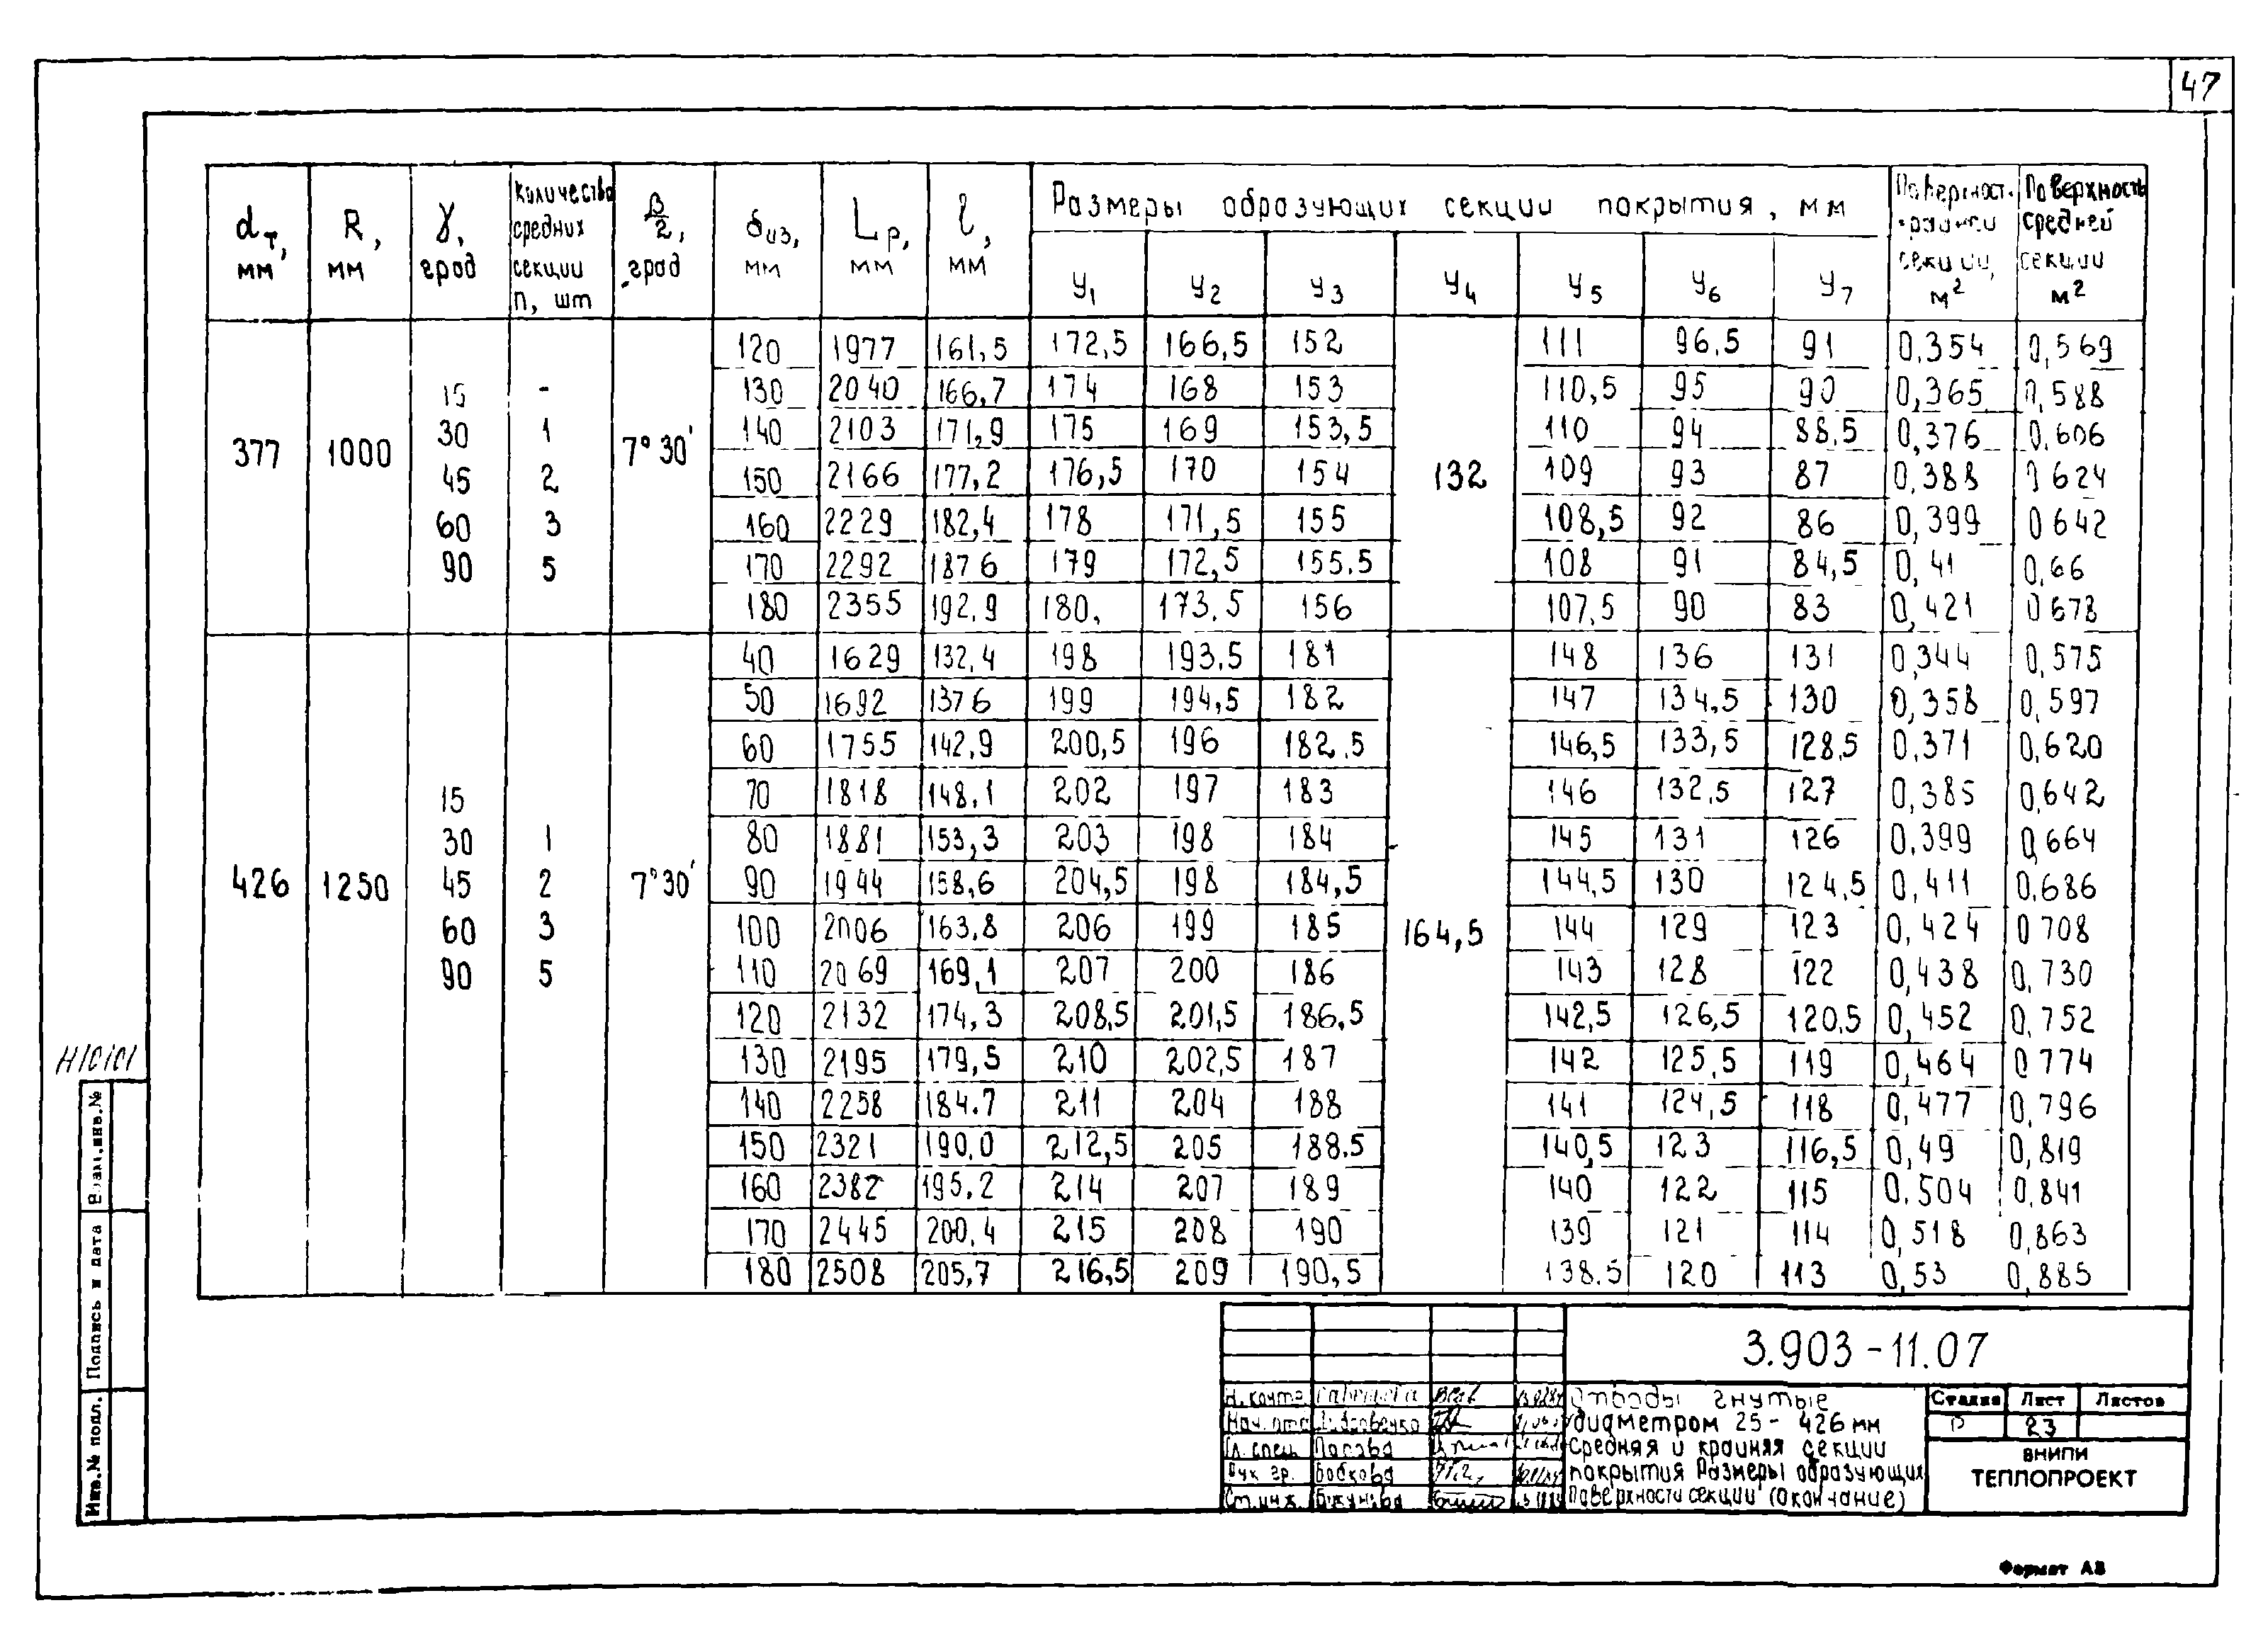 47
dт, мм
R, мм
γ, град
Количество средних секции n, шт
β/2, град
δиз, мм
Lр, мм
l, мм
Размеры образующих секции покрытия, мм
У1 У2 У3 У4 У5 У6 У7
секции, м2
Поверхность средней секции м2
377 1000 7°30' 132
15 -
30 1
45 2
60 3
90 5
120 1977 161,5 172,5 166,5 152 111 96,5 91 0,354 0,569
130 2040 166,7 174 168 153 110,5 95 90 0,365 0,588
140 2103 171,9 175 169 153,5 110 94 88,5 0,376 0,606
150 2166 177,2 176,5 170 154 109 93 87 0,388 0 624
160 2229 182,4 178 171,5 155 108,5 92 86 0,399 0 642
170 2292 187 6 179 172,5 155.5 108 91 84,5 0,41 0,66
180 2355 192,9 180. 173.5 156 107,5 90 83 0,421 0 678
426 1250 7°30' 164,5
15
30 1
45 2
60 3
90 5
40 1629 132,4 198 193.5 181 148 136 131 0,344 0,575
50 1692 137 6 199 194,5 182 147 134,5 130 0,358 0,597
60 1755 142,9 200,5 196 182.5 146,5 133,5 128,5 0,371 0,620
70 1818 148,1 202 197 183 146 132,5 127 0,385 0,642
80 1881 153,3 203 198 184 145 131 126 0,399 0,664
90 1944 158,6 204,5 198 184,5 144,5 130 124,5 0,411 0,686
100 2006 163,8 206 199 185 144 129 123 0,424 0 708
110 2069 169,1 207 200 186 143 128 122 0,438 0,730
120 2132 174,3 208,5 201,5 186,5 142,5 126,5 120,5 0,452 0,752
130 2195 179,5 210 202,5 187 142 125,5 119 0,464 0 774
140 2258 184.7 211 204 188 141 124,5 118 0,477 0,796
150 2321 190,0 212,5 205 188.5 140,5 123 116,5 0,49 0,819
160 2382 195,2 214 207 189 140 122 115 0.504 0,841
170 2445 200,4 215 208 190 139 121 114 0,518 0,863
180 2508 205,7 216,5 209 190,5 138.5 120 113 0,53 0,885
Взам.инв.№
Подпись и дата
Инв.№ подл.
3.903-11.07
Н. контр.
Нач. отд
Гл. спец. Попова
Рук гр. Бобкова
Ст.инж.
Отводы гнутые
диаметром 25- 426 мм
Средняя и крайняя секции
покрытия Размеры образующих
Поверхности секции (окончание)
Стадия Лист Листов
Р 23
ВНИПИ
ТЕПЛОПРОЕКТ
Формат А3